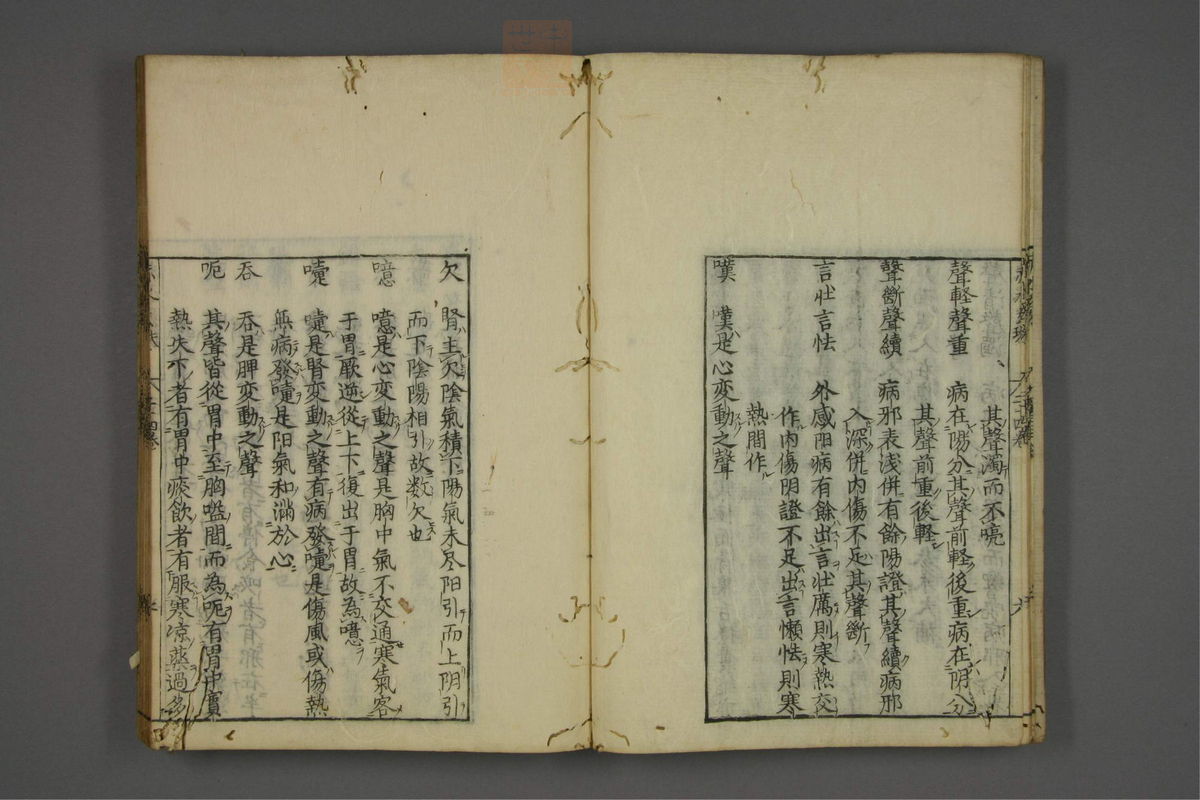 其聲濁而不喨
聲軽聲重 病在陽分其聲前軽後重病在阴分
其聲前重後軽
聲斷聲續 病邪表浅併有餘陽證其聲續病邪
入深併内傷不足其聲斷
言壮言怯 外感阳病有餘出言壮厲則寒熱交
作内傷阴證不足出言懶怯則寒
熱間作
嘆 嘆是心变動之聲
欠 腎主欠陰氣積下陽氣未尽阳引而上阴引
而下陰陽相引故数欠也
噫 噫是心変動之聲是胸中氣不交通寒氣客
于胃厥逆從上下復出于胃故為噫
嚏 嚏是腎変動之聲有病發嚏是傷風或傷熱
無病發嚏是阳氣和滿於心
吞 吞是脾変動之聲
呃 其聲皆從胃中至胸嗌間而為呃有胃中實
熱失下者有胃中痰飲者有服寒凉藥過多